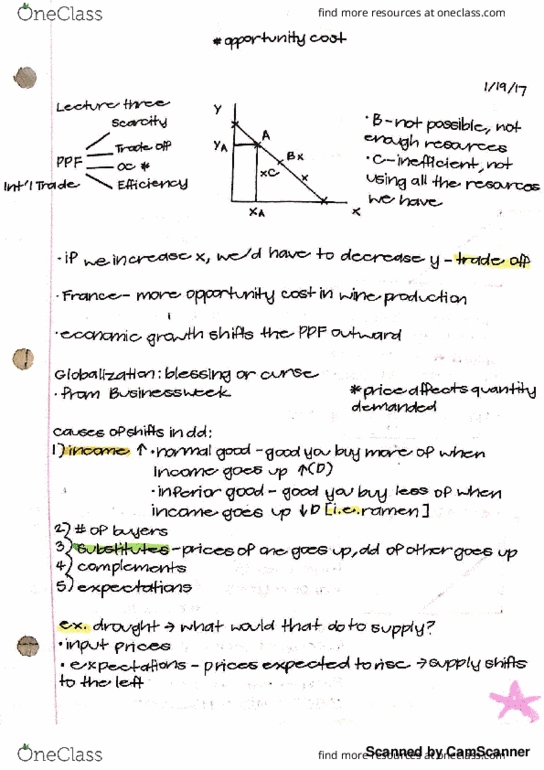 OneClass
find more resources at oneclass.com
*opportunity cost
1/19/17
Lecture three
scarcity
Trade off
PPF
OC *
Int'l Trade
Efficiency
Y
YA
A
Bx
xC
x
XA
X
·B-not possible, not
enough resources
·C-inefficient, not
using all the resources
we have
·if we increase x, we'd have to decrease y - trade off
·France - more opportunity cost in wine production
·economic growth shifts the PPF outward
Globalization: blessing or curse
·from Businessweek
*price affects quantity
demanded
causes of shifts in dd:
1) income ↑ ·normal good - good you buy more of when
income goes up ↑(D)
·inferior good - good you buy less of when
income goes up ↓D [i.e. ramen]
2) # of buyers
3) substitutes - prices of one goes up, dd of other goes up
4) complements
5) expectations
ex. drought → what would that do to supply?
·input prices
·expectations - prices expected to rise → supply shifts
to the left
OneClass
find more resources at oneclass.com
Scanned by CamScanner